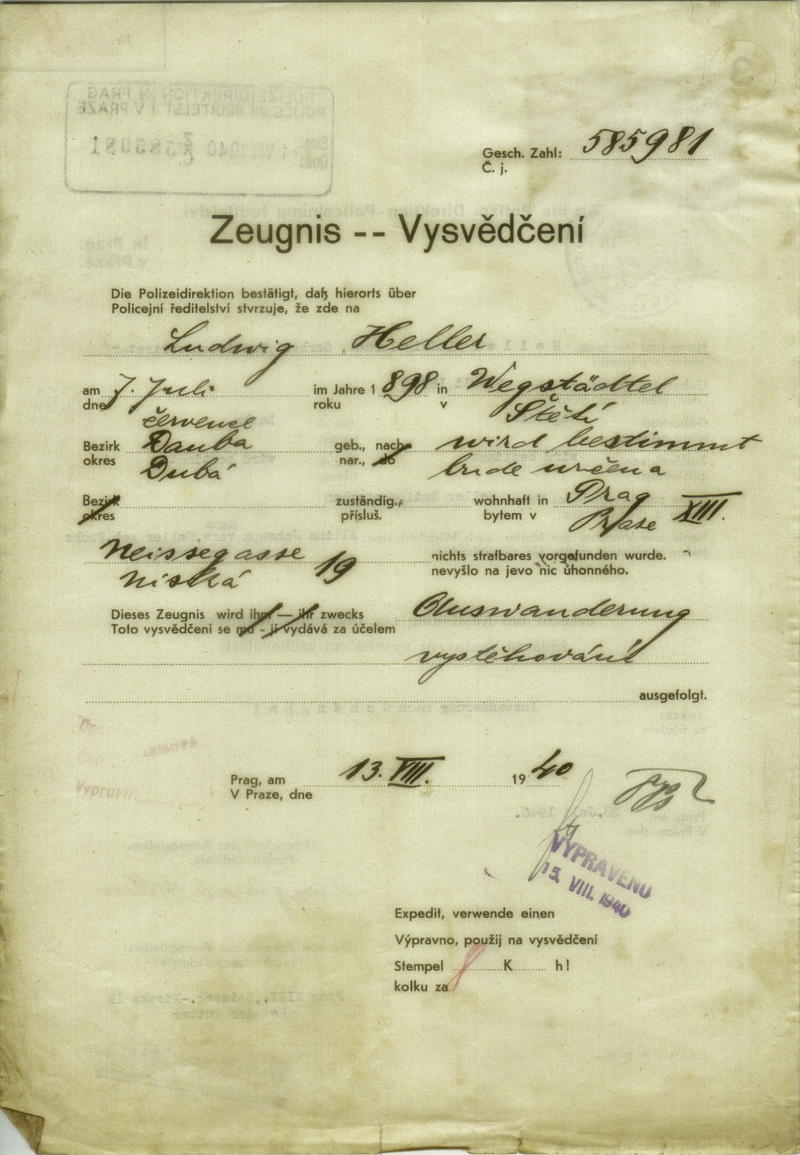 Gesch. Zahl: 585981
Č. j.
Zeugnis -- Vysvědčení
Die Polizeidirektion bestätigt, daß hierorts über
Policejní ředitelství stvrzuje, že zde na
Ludwig Heller
am 7. Juli im Jahre 1898 in Wegstädtel
dne července roku v Štětí
Bezirk Dauba geb., nach wird bestimmt
okres Dubá nar., do bude určena
Bezirk zuständig., wohnhaft in Prag XIII.
okres přísluš. bytem v Praze
Neissegasse 19 nichts strafbares vorgefunden wurde.
Niská nevyšlo na jevo nic úhonného.
Dieses Zeugnis wird ihm — ihr zwecks Auswanderung
Toto vysvědčení se mu - jí vydává za účelem
vystěhování
ausgefolgt.
Prag, am 13. VIII. 1940
V Praze, dne
VYPRAVENO
15. VIII. 1940
Expedit, verwende einen
Výpravno, použij na vysvědčení
Stempel K h!
kolku za